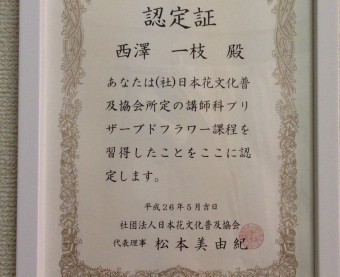 認定証
西澤 一枝 殿
あなたは(社)日本花文化普
及協会所定の講師科プリ
ザーブドフラワー課程を
習得したことをここに認
定します。
平成26年5月吉日
社団法人日本花文化普及協会
代表理事 松本美由紀